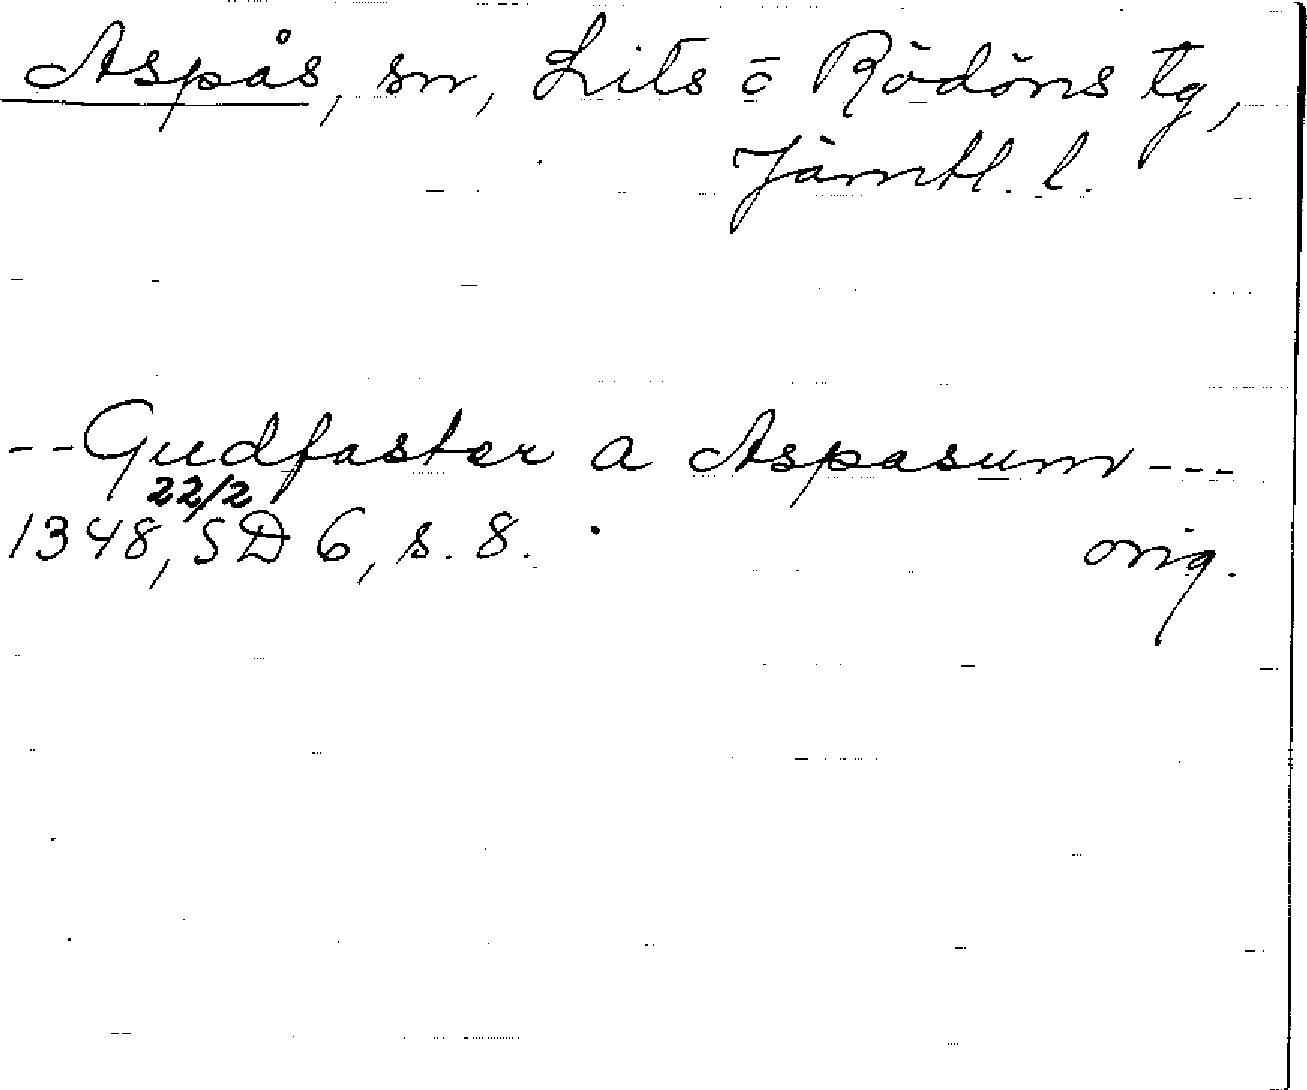 Aspås, sn, Lits ō Rödöns tg,
Jämtl. l.
--Gudfaster a Aspasum---
22/2
1348, SD 6, s. 8.
orig.